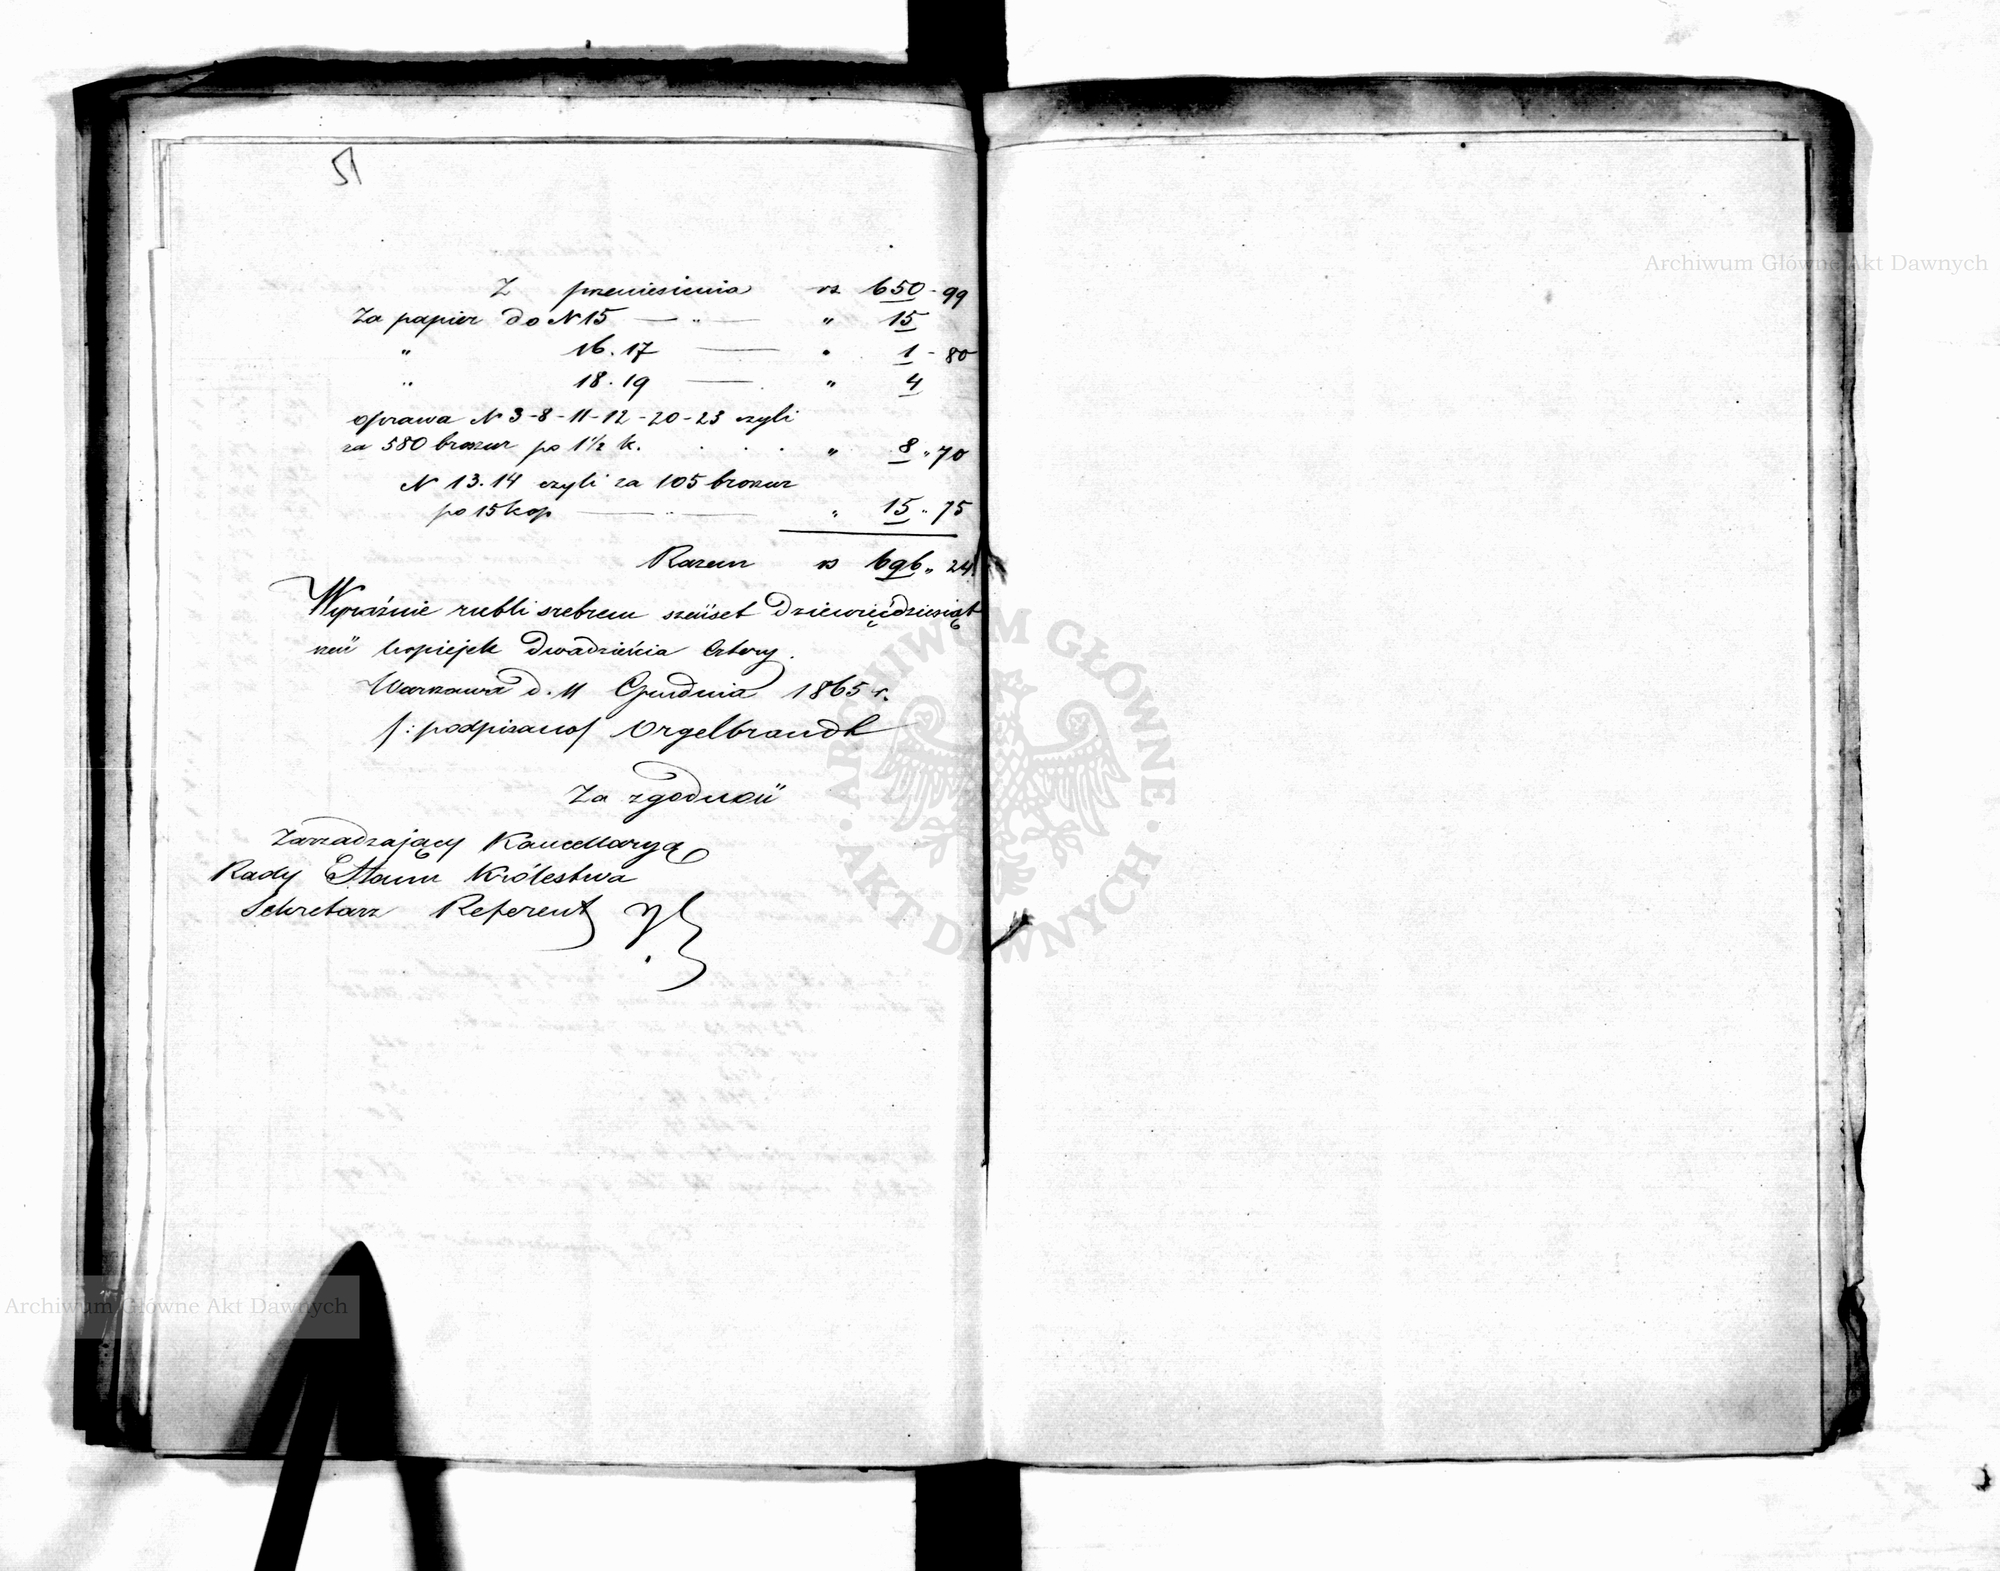 51
Z przeniesienia rs 650 - 99
Za papier do N 15 — " — " 15
" 16. 17 — " 1 - 80
" 18. 19 — " 4
oprawa N 3-8-11-12-20-23 czyli
za 580 broszur po 1 1/2 k. . . . " 8 " 70
N 13. 14 czyli za 105 broszur
po 15 kop — " — " 15 " 75
Razem rs 696 " 24
Wyraźnie rubli srebrem sześset Dziewięćdziesiąt
sześ kopiejek Dwadzieścia Cztery.
Warszawa d. 11 Grudnia 1865 r.
/: podpisano/ Orgelbrandt
Za zgodność
Zarządzający Kancellaryą
Rady Stanu Królestwa
Sekretarz Referent
Archiwum Główne Akt Dawnych
ARCHIWUM GŁÓWNE · AKT DAWNYCH ·
Archiwum Główne Akt Dawnych